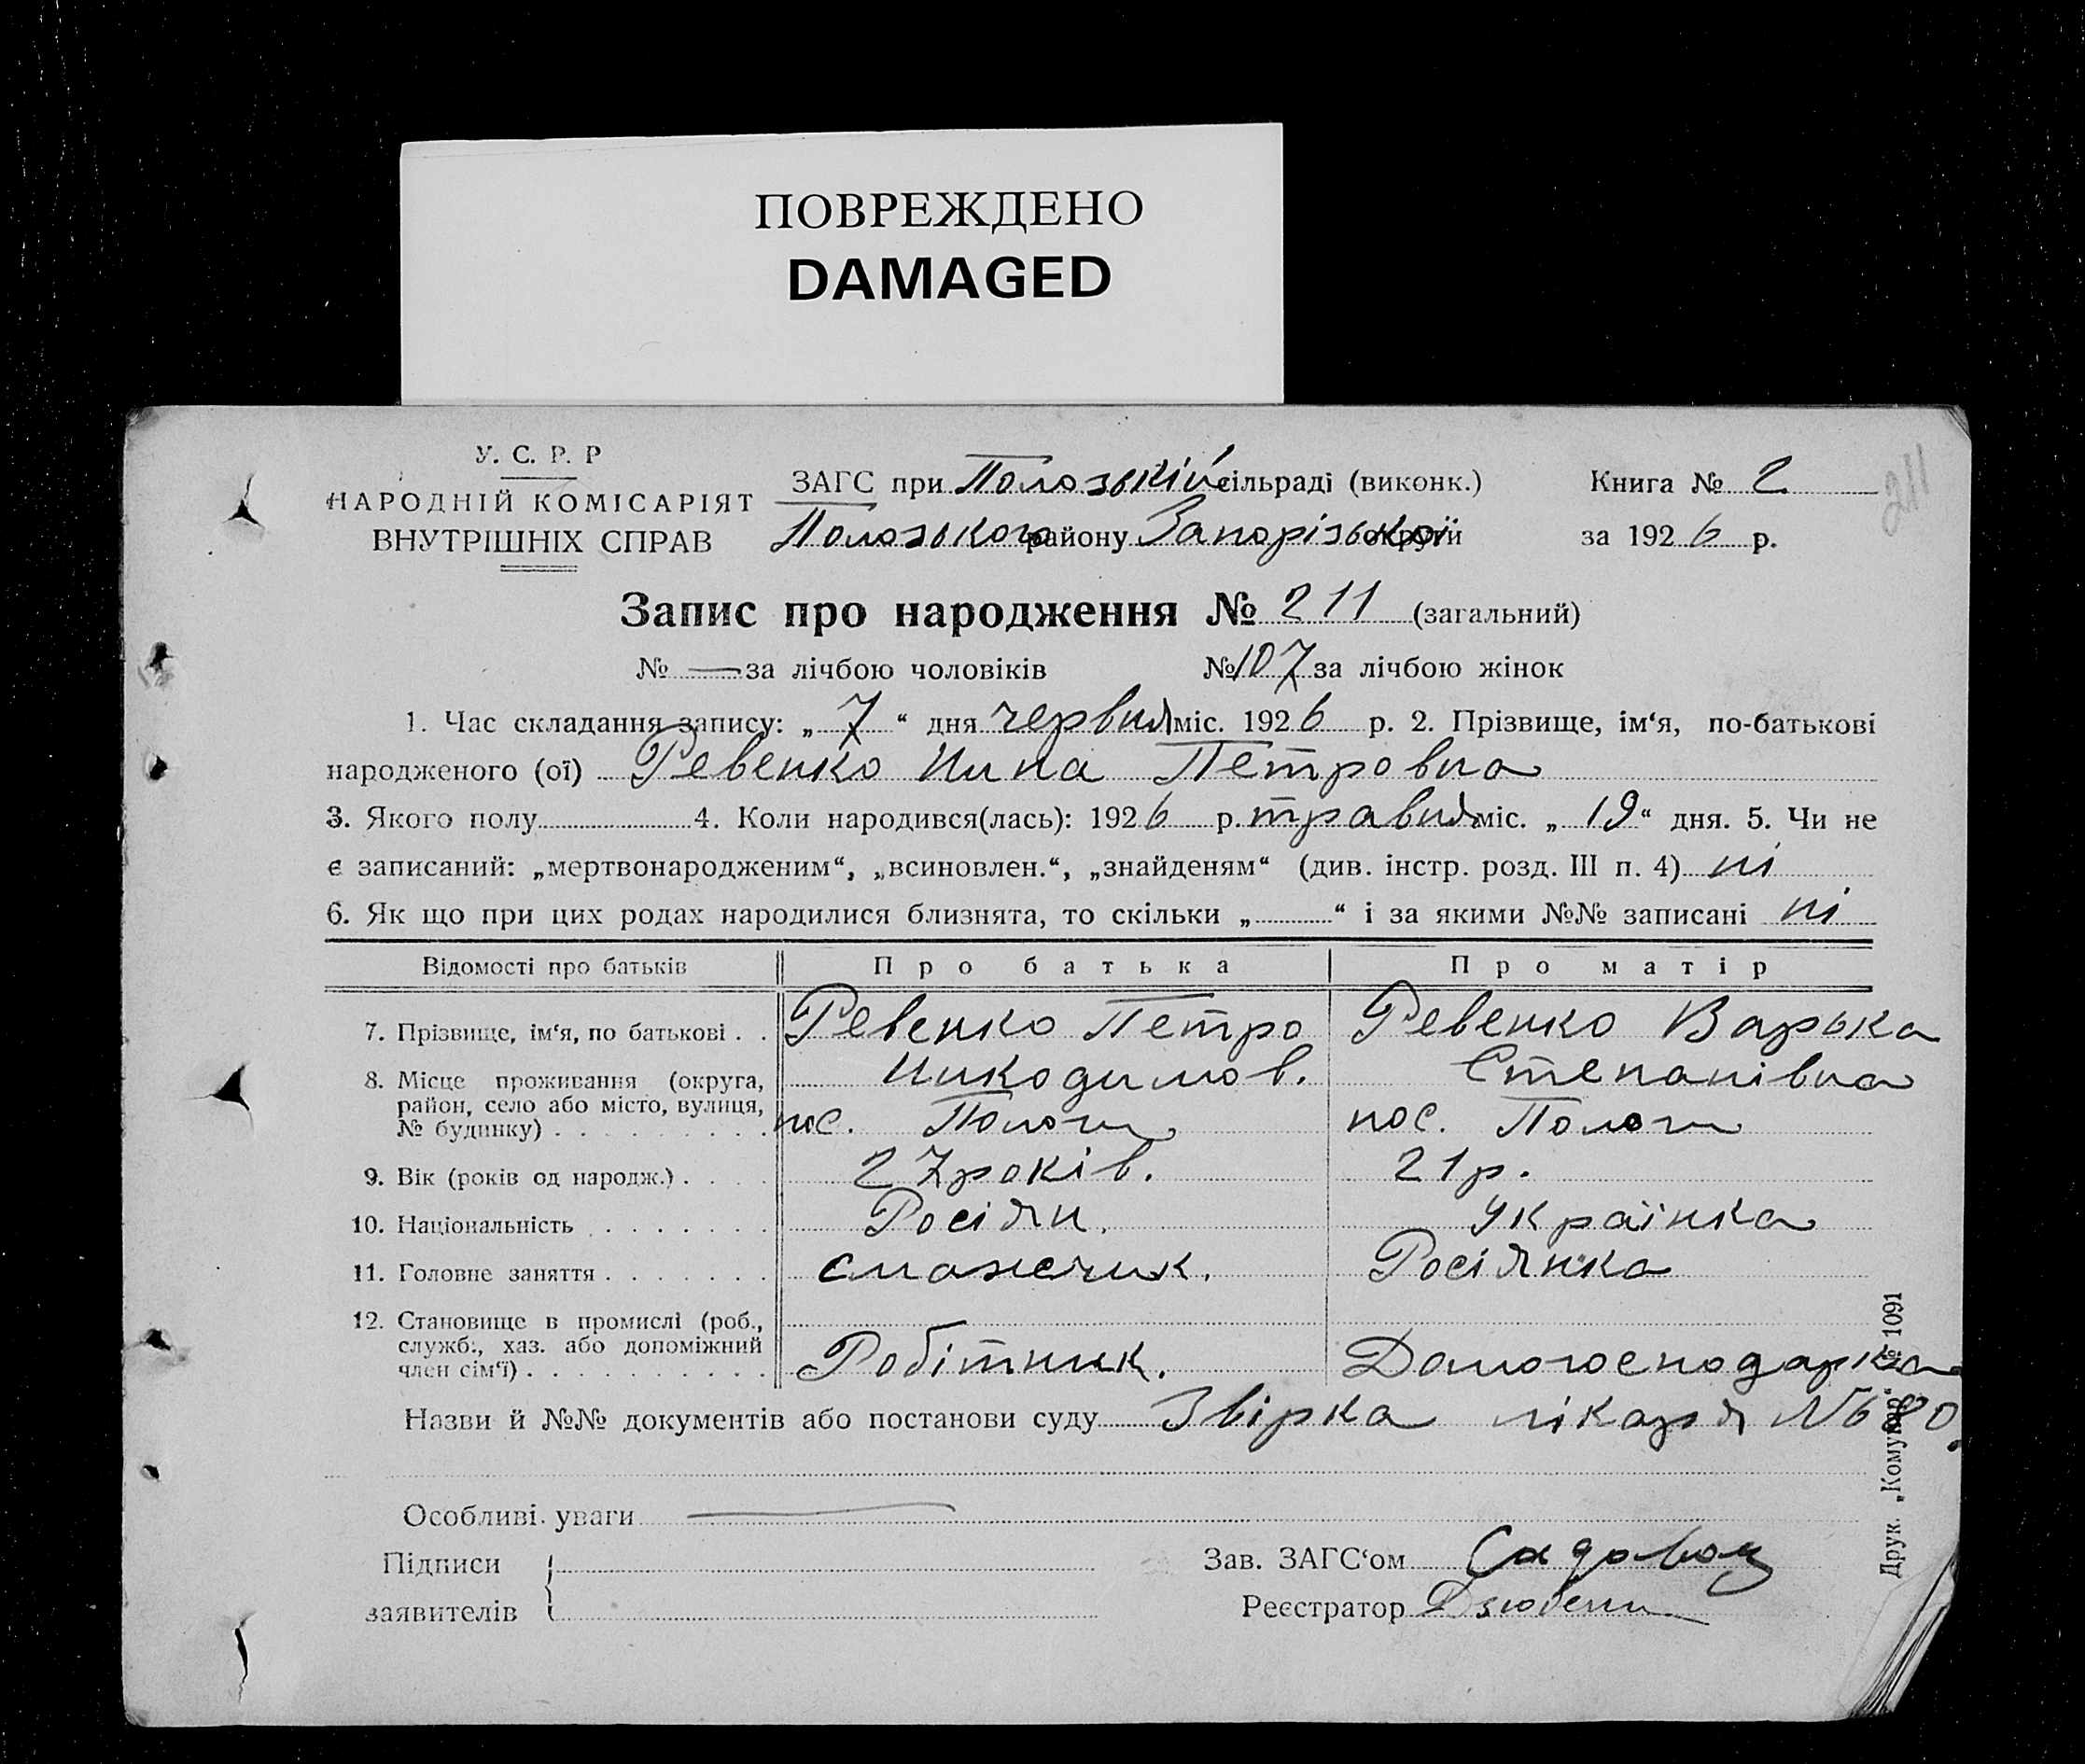 ПОВРЕЖДЕНО
DAMAGED
211
У. С. Р. Р
НАРОДНІЙ КОМІСАРІЯТ
ВНУТРІШНІХ СПРАВ
ЗАГС при Пологській сільраді (виконк.)
Пологського району Запорізької округи
Книга № 2
за 1926 р.
Запис про народження № 211 (загальний)
№ — за лічбою чоловіків № 107 за лічбою жінок
1. Час складання запису: „7“ дня червня міс. 1926 р. 2. Прізвище, ім‘я, по-батькові
народженого (ої) Ревенко Нина Петровна
3. Якого полу 4. Коли народився(лась): 1926 р. травня міс. „19“ дня. 5. Чи не
є записаний: „мертвонародженим“, „всиновлен.“, „знайденям“ (див. інстр. розд. III п. 4) ні
6. Як що при цих родах народилися близнята, то скільки „ “ і за якими №№ записані ні
Відомості про батьків Про батька Про матір
7. Прізвище, ім‘я, по батькові . . Ревенко Петро Ревенко Варька
8. Місце проживання (округа, Никодимов. Степанівна
район, село або місто, вулиця,
№ будинку) . . . . . . . . . пос. Пологи пос. Пологи
9. Вік (років од народж.) . . . . 27 років. 21 р.
10. Національність . . . . . . . Росіян. Українка
11. Головне заняття . . . . . . . смажчик. Росіянка
12. Становище в промислі (роб.,
служб., хаз. або допоміжний
член сім‘ї) . . . . . . . . . . Робітник. Домогосподарка
Назви й №№ документів або постанови суду Звірка лікаря № 680.
Особливі уваги —
Підписи
заявителів
Зав. ЗАГС‘ом
Реєстратор
Друк. „Комунар“ № 1091